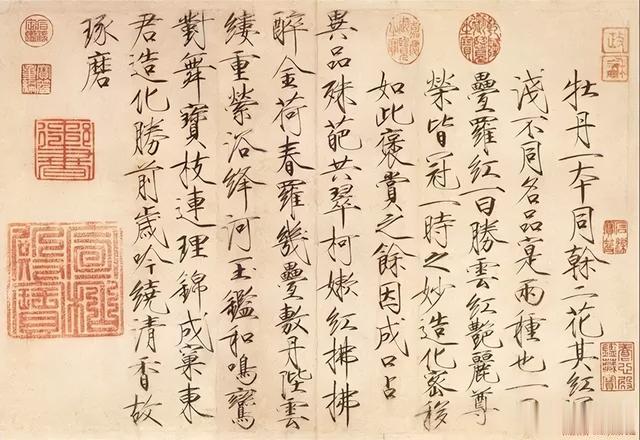 牡丹一本同幹二花其紅
淺不同名品寔兩種也一
疊羅紅一曰勝雲紅艷麗尊
榮皆冠一時之妙造化密移
如此褒賞之餘因成口占
異品殊葩共翠柯嫩紅拂拂
醉金荷春羅幾疊敷丹陛雲
縷重縈浴絳河玉鑑和鳴鸞
對舞寶枝連理錦成窠東
君造化勝前歲吟繞清香故
琢磨